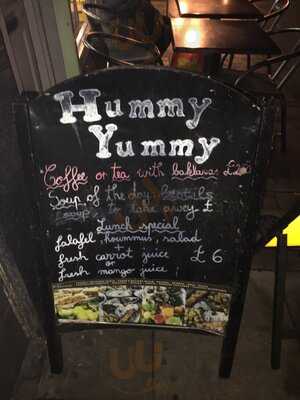 Hummy
Yummy
Coffee or tea with baklava £2
Soup of the day
to take away £
Lunch special
falafel, hoummus, salad
fresh carrot juice £6
or
fresh mango juice